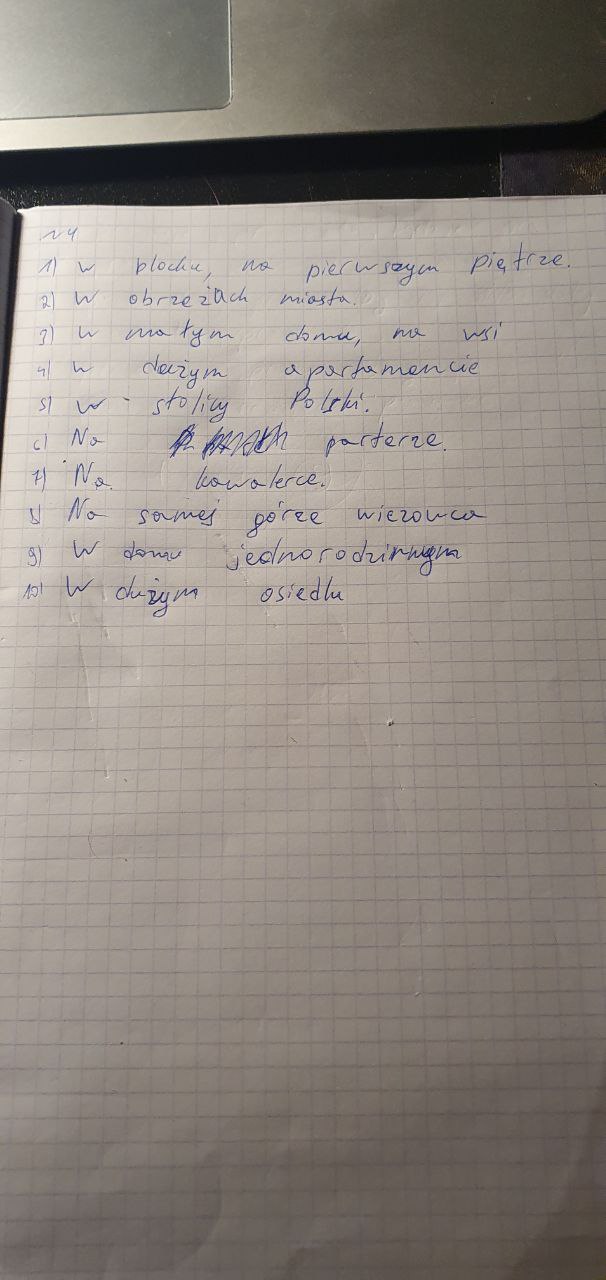 N4
1) W bloku, na pierwszym piętrze.
2) W obrzeżach miasta.
3) W małym domu, na wsi
4) W dużym apartamencie
5) W stolicy Polski.
6) Na parterze.
7) Na kawalerce.
8) Na samej górze wiezowca
9) W domu jednorodzinnym
10) W dużym osiedlu